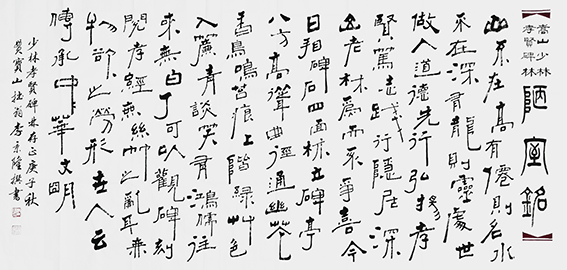 嵩山少林
孝賢碑林
陋室銘
山不在高有僊則名水
不在深有龍則靈處世
做人道德先行弘揚孝
賢篤志踐行隱居深
山老林爲而不爭喜今
日相碑石四面林立碑亭
八方高聳曲徑通幽花
香鳥鳴苔痕上階緑艸色
入簾青談笑有鴻儒往
來無白丁可以觀碑刻
閲孝經無絲竹之亂耳無
物欲之勞形世人云
傳承中華文明
少林孝賢碑林存正庚子秋
寶山拙翁李京隆撰書